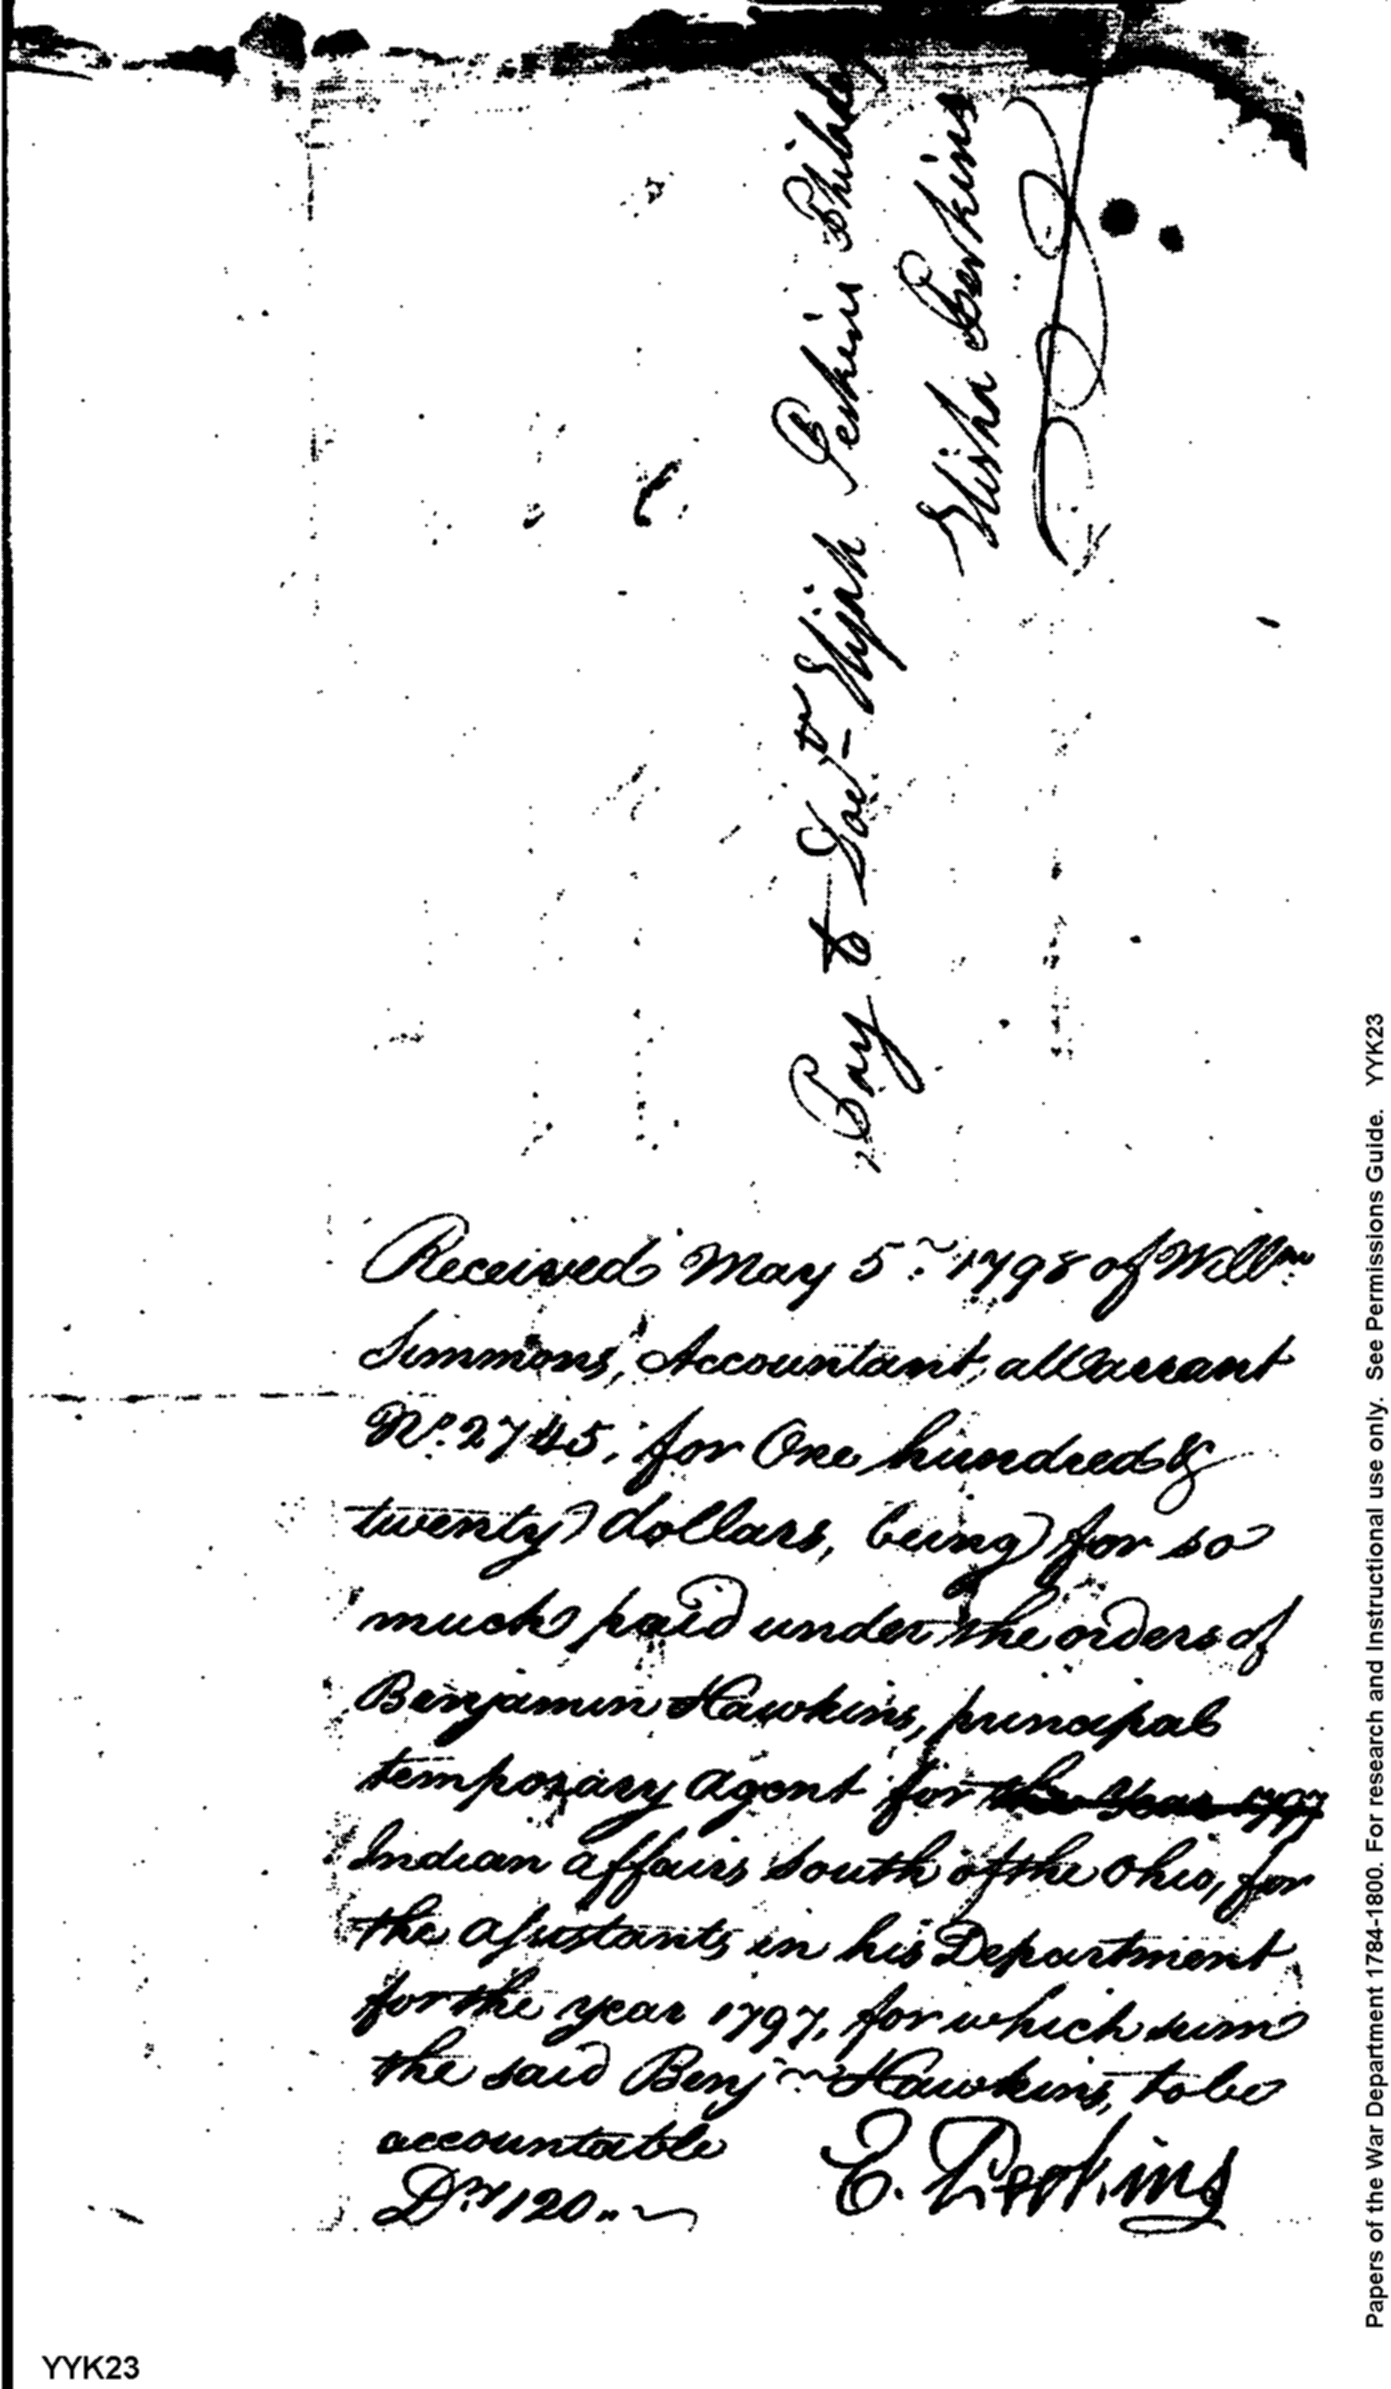 Pay to Doctr Elijah Perkins Philade
Elisha Perkins
Received May 5th. 1798 of Willm
Simmons, Accountant, a Warrant
No. 2745, for One hundred &
twenty dollars, being for so
much paid under the orders of
Benjamin Hawkins, principal
temporary agent for the Year 1797
Indian affairs South of the Ohio, for
the Assistants in his Department
for the year 1797, for which sum
the said Benjn Hawkins, to be
accountable
Drs 120..
E. Perkins
Papers of the War Department 1784-1800. For research and Instructional use only. See Permissions Guide. YYK23
YYK23